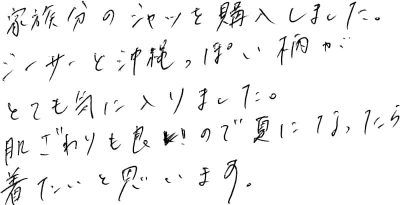 家族分のシャツを購入しました。
シーサーと沖縄っぽい柄が
とても気に入りました。
肌ざわりも良いので夏になったら
着たいと思います。